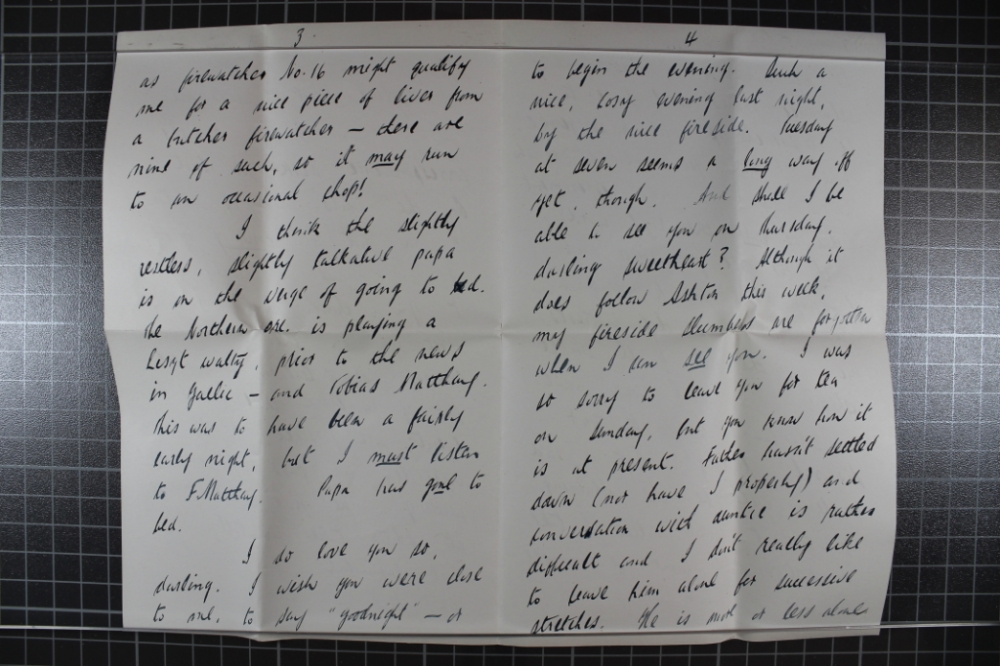 3
as firewatcher No. 16 might qualify
me for a nice piece of liver from
a butcher firewatcher — there are
nine of such, so it may run
to an occasional chop!
I think the slightly
restless, slightly talkative papa
is on the verge of going to bed.
The Northern is playing a
Liszt waltz, prior to the news
in Gaelic — and Tobias Matthay.
This was to have been a fairly
early night, but I must listen
to Matthay. Papa has gone to
bed.
I do love you so,
darling. I wish you were close
to me, to say "goodnight" — or
4
to begin the evening. Such a
nice, cosy evening last night,
by the nice fireside. Tuesday
at seven seems a long way off
yet, though. And shall I be
able to see you on Thursday,
darling sweetheart? Although it
does follow Ashton this week,
my fireside slumbers are forgotten
when I can see you. I was
so sorry to leave you for tea
on Sunday, but you know how it
is at present. Father hasn't settled
down (nor have I properly) and
conversation with auntie is rather
difficult and I don't really like
to leave him alone for successive
stretches. He is more or less alone